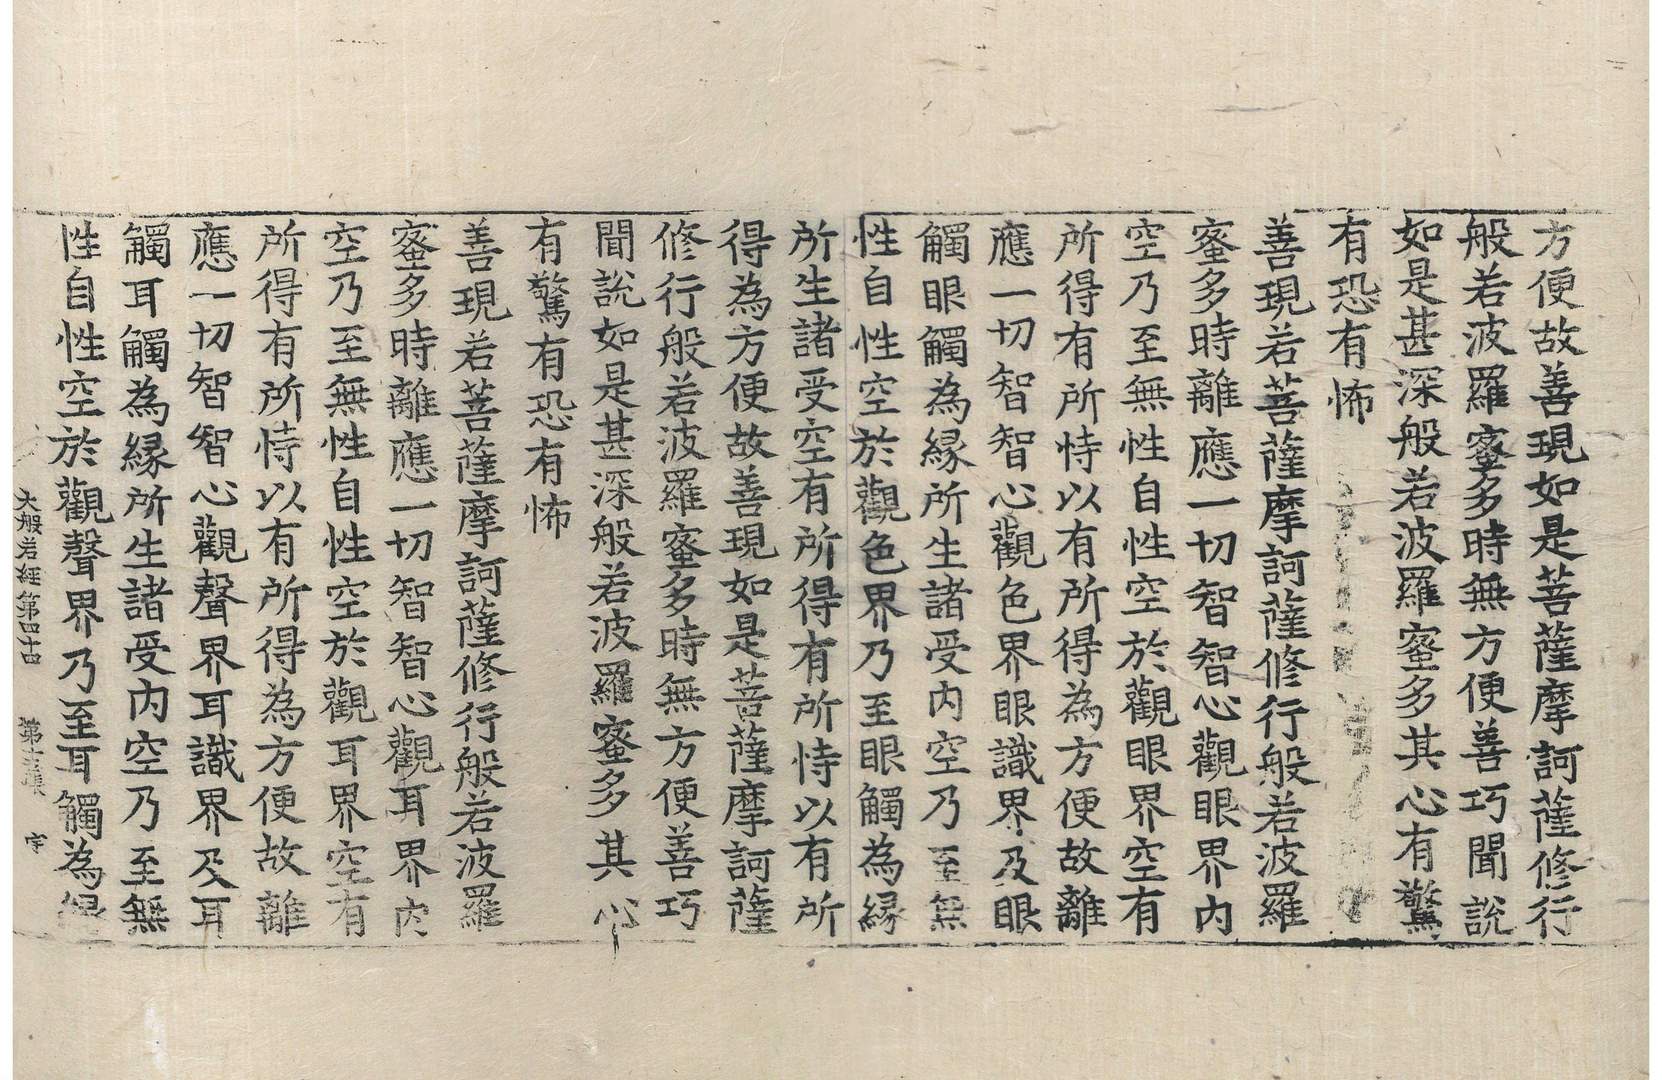 方便故善現如是菩薩摩訶薩修行
般若波羅蜜多時無方便善巧聞說
如是甚深般若波羅蜜多其心有驚
有恐有怖
善現若菩薩摩訶薩修行般若波羅
蜜多時離應一切智智心觀眼界內
空乃至無性自性空於觀眼界空有
所得有所恃以有所得為方便故離
應一切智智心觀色界眼識界及眼
觸眼觸為緣所生諸受內空乃至無
性自性空於觀色界乃至眼觸為緣
所生諸受空有所得有所恃以有所
得為方便故善現如是菩薩摩訶薩
修行般若波羅蜜多時無方便善巧
聞說如是甚深般若波羅蜜多其心
有驚有恐有怖
善現若菩薩摩訶薩修行般若波羅
蜜多時離應一切智智心觀耳界內
空乃至無性自性空於觀耳界空有
所得有所恃以有所得為方便故離
應一切智智心觀聲界耳識界及耳
觸耳觸為緣所生諸受內空乃至無
性自性空於觀聲界乃至耳觸為緣
大般若經第四十四 第 張 宇